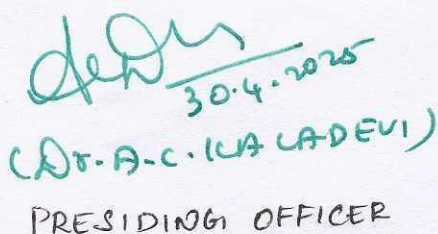 30.4.2025
(Dr. A.C. KALADEVI)
PRESIDING OFFICER